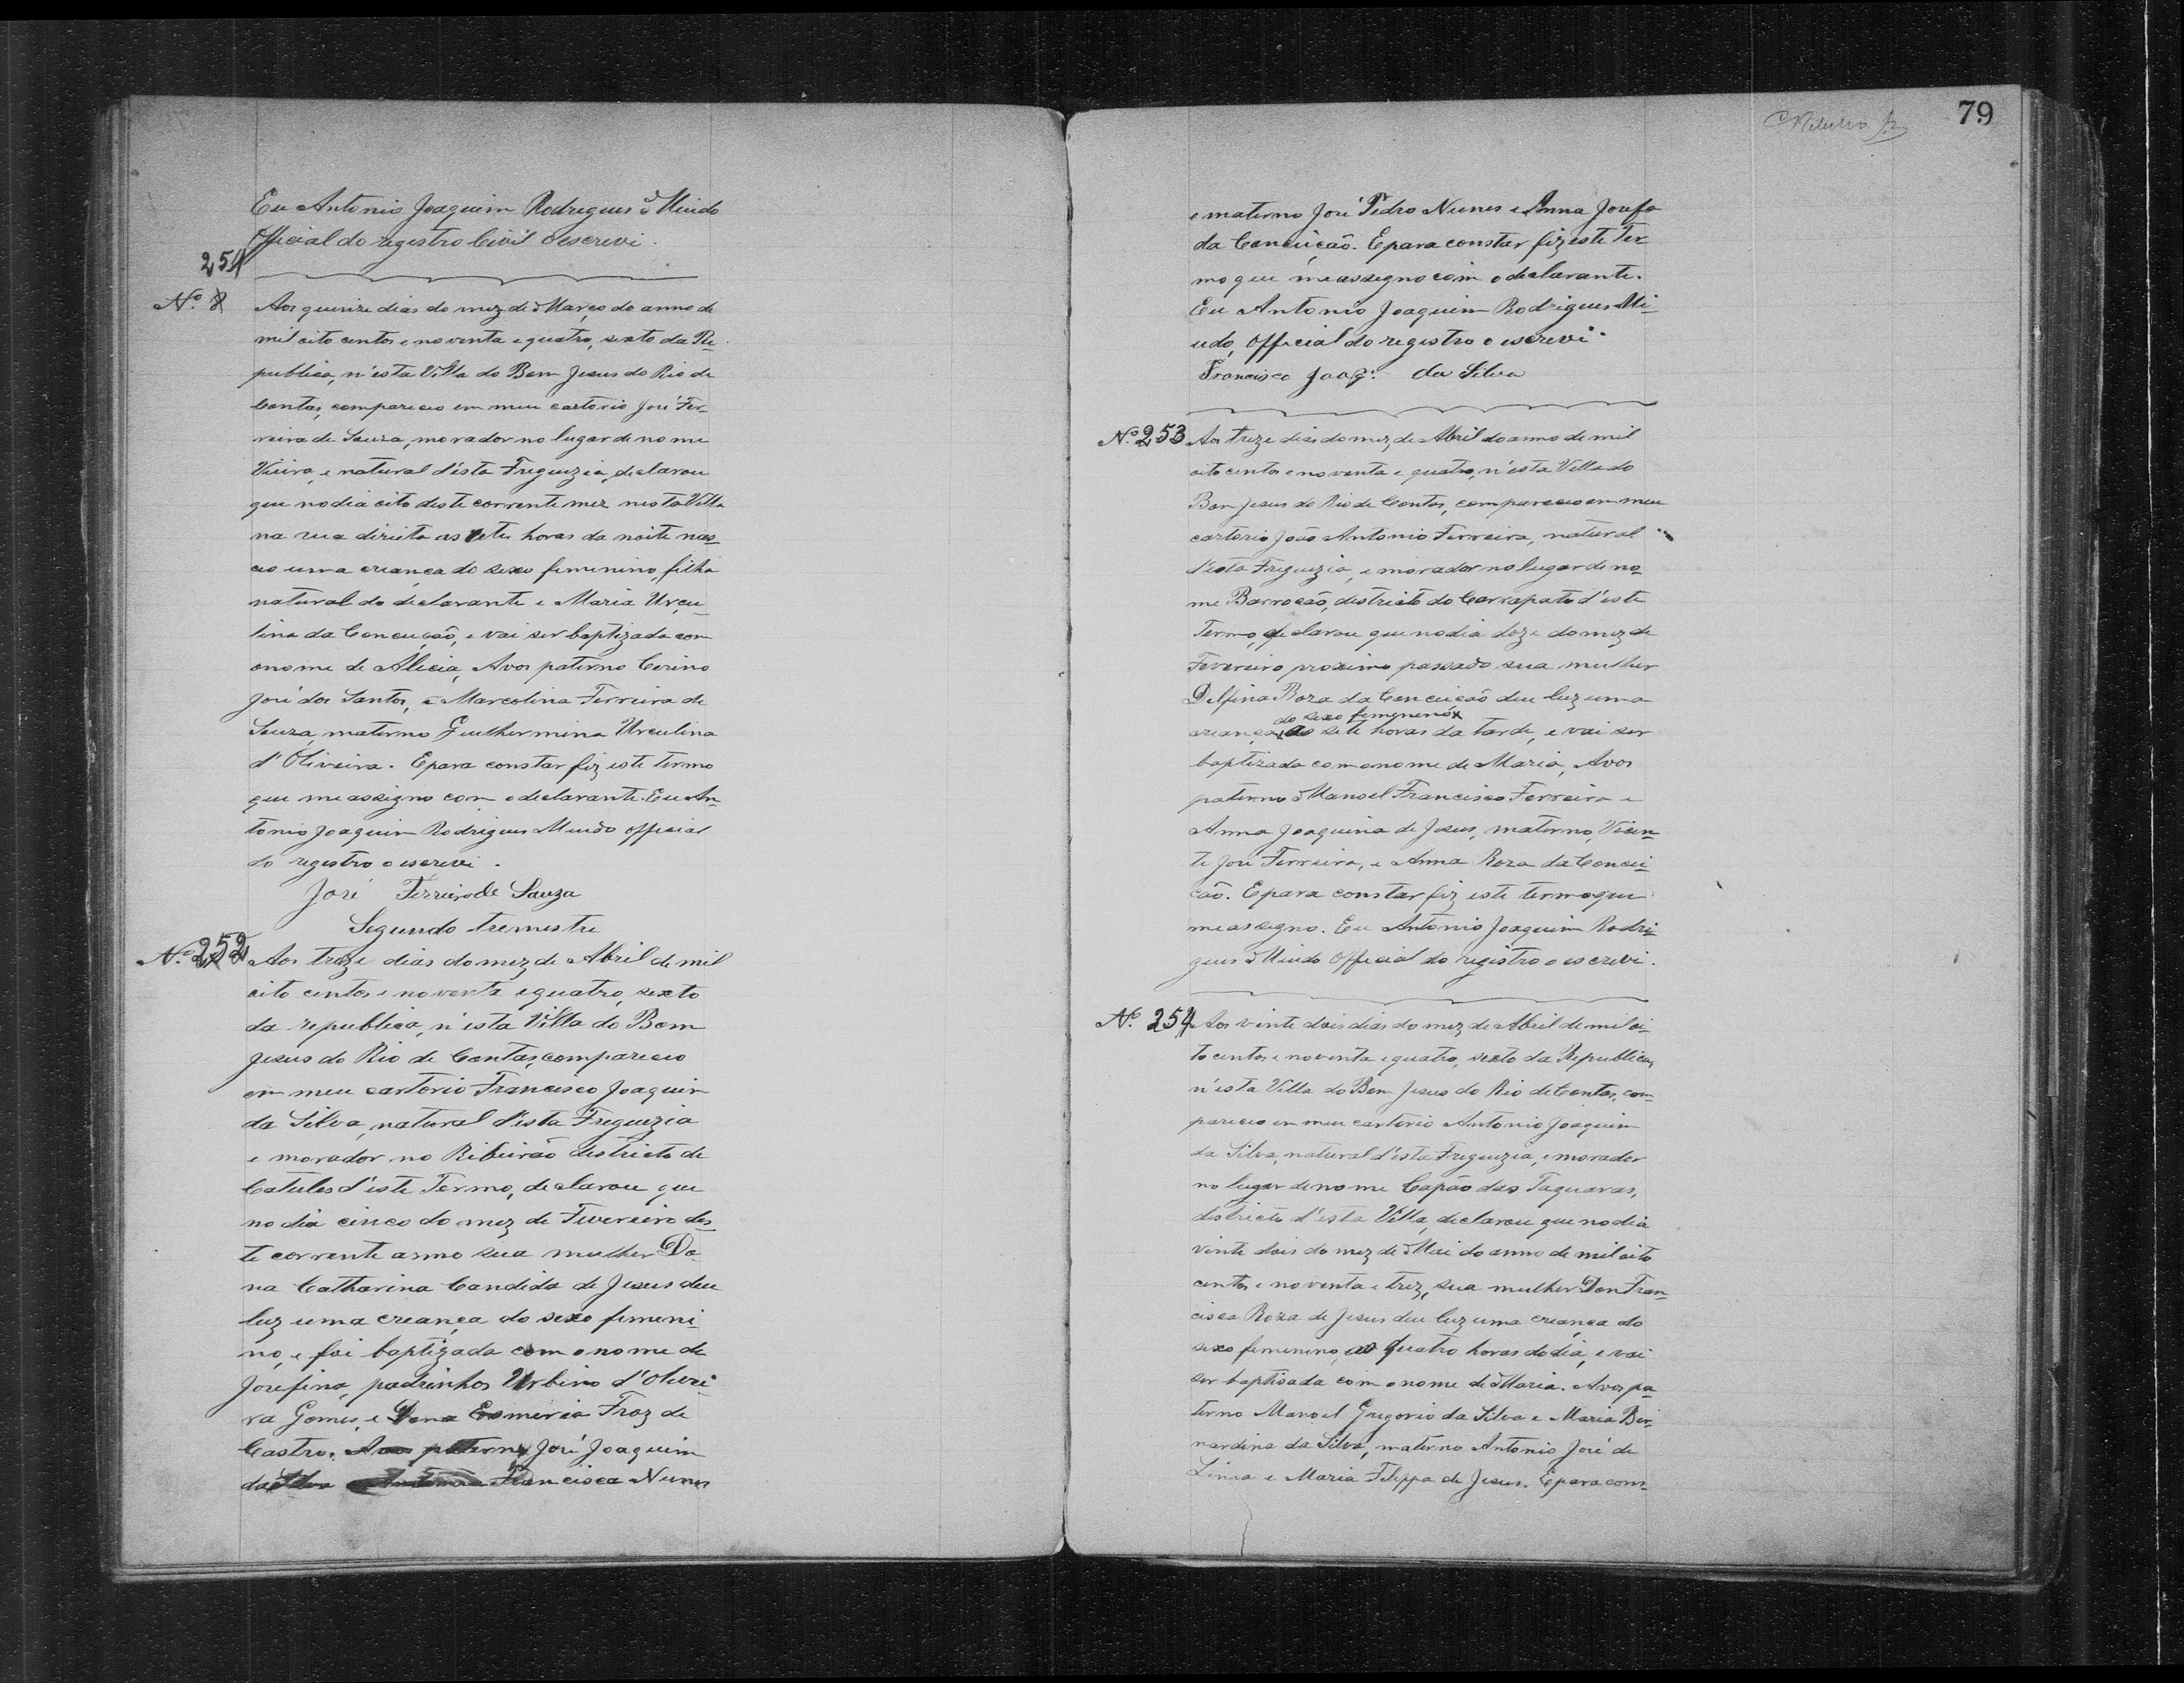 Eu Antonio Joaquim Rodrigues Miudo
Official do registro Civil o escrevi.
251
Nº 8 Aos quinze dias do mez de Março do anno de
mil oito centos e noventa e quatro, sexto da Re-
publica, n'esta Villa do Bom Jesus do Rio de
Contas, compareceo em meu cartorio José Fer-
reira de Souza, morador no lugar de nome
Vieira, e natural d'esta Freguezia, declarou
que no dia oito deste corrente mez nesta Villa
na rua direita as sete horas da noite nas-
ceo uma creança do sexo femenino, filha
natural do declarante e Maria Urcu-
lina da Conceição, e vai ser baptizada com
o nome de Alicia, Avos paterno Cerino
José dos Santos, e Marcolina Ferreira de
Souza, materno Guilhermina Urculina
d'Oliveira. E para constar fiz este termo
que me assigno com o declarante. Eu An-
tonio Joaquim Rodrigues Miudo official
do registro o escrevi.
José Ferreira de Souza
Segundo tremestre
Nº 252 Aos treze dias do mez de Abril de mil
oito centos e noventa e quatro, sexto
da republica, n'esta Villa do Bom
Jesus do Rio de Contas, compareceo
em meu cartorio Francisco Joaquim
da Silva, natural d'esta Freguezia
e morador no Ribeirão districto de
Catules d'este Termo, declarou que
no dia cinco do mez de Fevereiro des-
te corrente anno sua mulher Do-
na Catharina Candida de Jesus deu
luz uma creança do sexo femeni-
no, e foi baptizada com o nome de
Josefina, padrinhos Urbino d'Olivei-
ra Gomes, e Dona Esmeria Froz de
Castro. Avos paterno José Joaquim
da Silva Francisca Nunes
79
e materno José Pedro Nunes e Anna Josefa
da Conceição. E para constar fiz este Ter-
mo que me assegno com o declarante.
Eu Antonio Joaquim Rodrigues Mi-
udo, Official do registro o escrevi.
Francisco Joaq: da Silva
Nº 253 Aos treze dias do mez de Abril do anno de mil
oito centos e noventa e quatro, n'esta Villa do
Bom Jesus do Rio de Contas, compareceo em meu
cartorio João Antonio Ferreira, natural
d'esta Freguezia, e morador no lugar de no-
me Barrocão, destricto do Carrapato d'este
Termo, declarou que no dia doze do mez de
Fevereiro proximo passado sua mulher
Delfina Roza da Conceição deu luz uma
do sexo femenino
creança, as sete horas da tarde, e vai ser
baptizada com o nome de Maria, Avos
paterno Manoel Francisco Ferreira e
Anna Joaquina de Jesus, materno, Vicen-
te José Ferreira, e Anna Roza da Concei-
cão. E para constar fiz este termo que
me assegno. Eu Antonio Joaquim Rodri-
gues Miudo Official do registro o escrevi.
Nº 254 Aos vinte dois dias do mez de Abril de mil oi-
to centos e noventa e quatro, sexto da Republica,
n'esta Villa do Bom Jesus do Rio de Contas, com-
pareceo em meu cartorio Antonio Joaquim
da Silva, natural d'esta Freguezia, e morador
no lugar de nome Capão das Taquaras,
districto d'esta Villa, declarou que no dia
vinte dois do mez de Mai do anno de mil oito
centos e noventa e trez, sua mulher Don Fran-
cisca Roza de Jesus deu luz uma creança do
sexo femenino, as quatro horas do dia, e vai
ser baptisada com o nome de Maria. Avos pa-
terno Manoel Gregorio da Silva e Maria Ber-
nardina da Silva, materno Antonio José de
Lima e Maria Felippa de Jesus. E para cons-